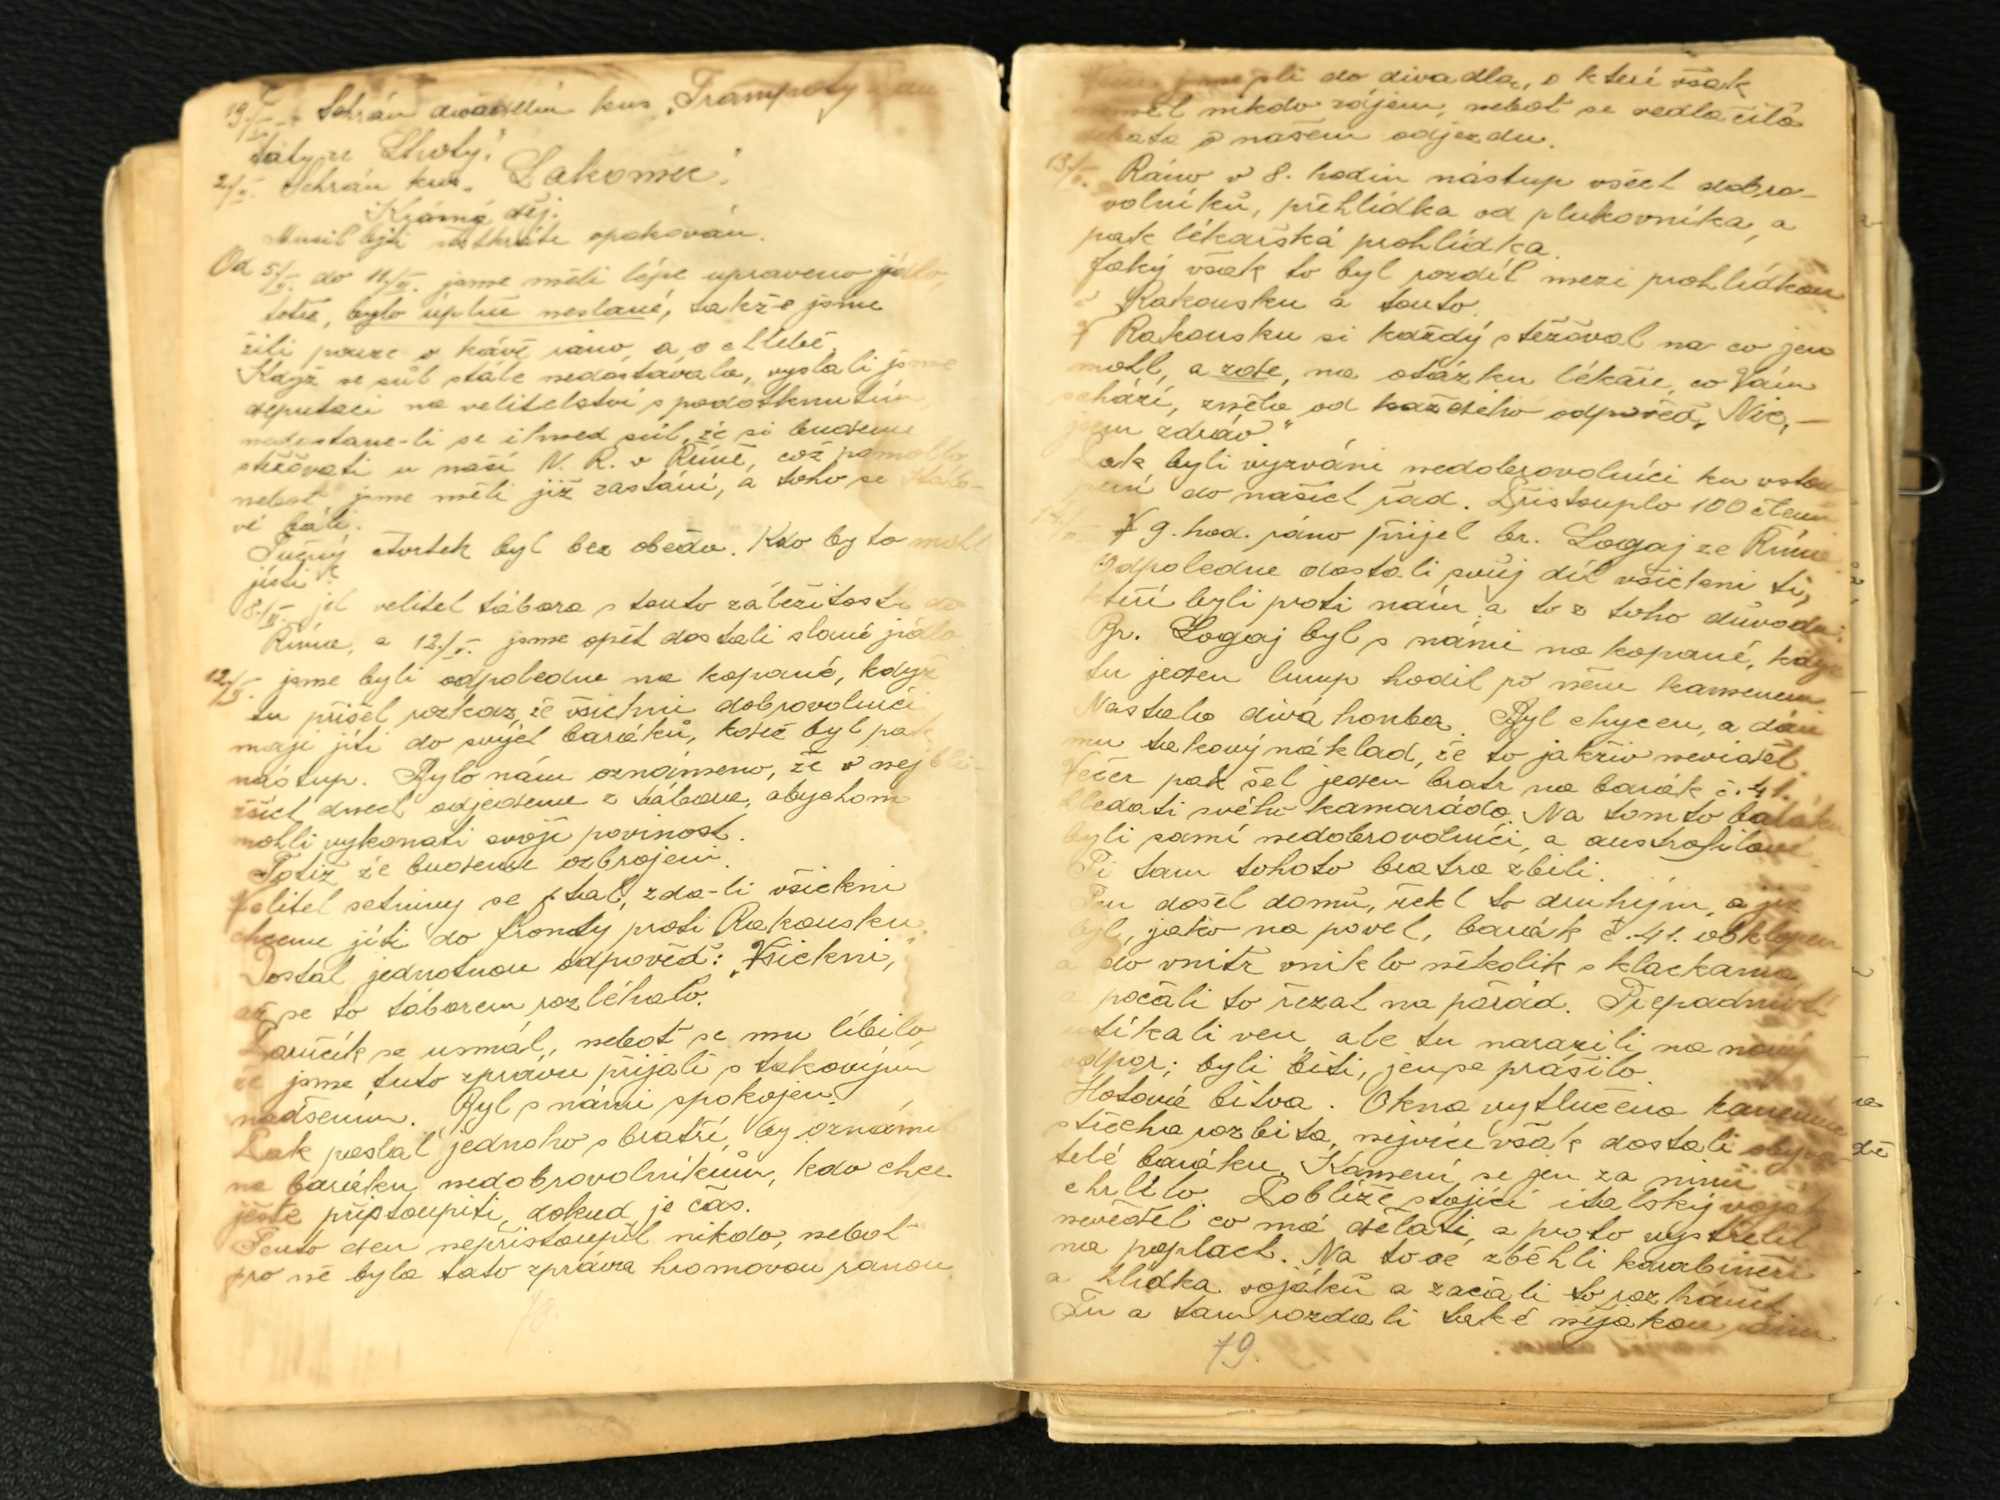 19./I. Sehrán divadelní kus „Trampoty
táty ze Lhoty."
2./II. Sehrán kus „Lakomec".
Krásný děj.
Musil býti několikráte opakován.
Od 5./II. do 11./II. jsme měli lépe upraveno jídlo,
totiž, bylo úplně neslané, takže jsme
žili pouze o kávě ráno, a o chlebě.
Když se sůl stále nedostávala, vyslali jsme
deputaci na velitelství s podotknutím,
nedostane-li se ihned sůl, že si budeme
stěžovati u naší N. R. v Římě, což pomohlo,
neboť jsme měli již zastání, a toho se Italo-
vé báli.
Tučný čtvrtek byl bez oběda. Kdo by to mohl
jísti?
8./II. jel velitel tábora s touto záležitostí do
Říma, a 12./II. jsme opět dostali slané jídlo
12./II. jsme byli odpoledne na kopané, když
tu přišel rozkaz, že všichni dobrovolníci
mají jíti do svých baráků, kdež byl pak
nástup. Bylo nám oznámeno, že v nejbli-
žších dnech odjedeme z tábora, abychom
mohli vykonati svoji povinost.
Totiž že budeme ozbrojeni.
Velitel setniny se ptal, zda-li všickni
chceme jíti do fronty proti Rakousku.
Dostal jednotnou odpověď: „Všickni,"
až se to táborem rozléhalo.
Poručík se usmál, neboť se mu líbilo,
že jsme tuto zprávu přijali s takovým
nadšením. Byl s námi spokojen.
Pak poslal jednoho s bratří, by oznámil
na baráku nedobrovolníkům, kdo chce
ještě přistoupiti, dokud je čas.
Tento den nepřistoupil nikdo, neboť
pro ně byla tato zpráva hromovou ranou.
78.
jsme šli do divadla, o které však
neměl nikdo zájem, neboť se vedla čilá
debata o našem odjezdu.
13./II. Ráno v 8. hodin nástup všech dobro-
volníků, přehlídka od plukovníka, a
pak lékařská prohlídka.
Jaký však to byl rozdíl mezi prohlídkou
v Rakousku a touto.
V Rakousku si každý stěžoval na co jen
mohl, a zde, na otázku lékaře, co Vám
schází, zněla od každého odpověď „Nic, —
jsem zdráv."
Pak byli vyzváni nedobrovolníci ku vstou-
pení do našich řad. Přistouplo 100 členů
14./II. V 9. hod. ráno přijel br. Logaj ze Říma.
Odpoledne dostali svůj díl všickni ti,
kteří byli proti nám a to z toho důvodu:
Br. Logaj byl s námi na kopané, když
tu jeden lump hodil po něm kamenem.
Nastala divá honba. Byl chycen, a dán
mu takový náklad, že to jakživ neviděl.
Večer pak šel jeden bratr na barák č. 41.
hledati svého kamaráda. Na tomto baráku
byli samí nedobrovolníci, a austrofilové.
Ti tam tohoto bratra zbili.
Ten došel domů, řekl to druhým, a již
byl, jako na povel, barák č. 41. obklopen
a do vnitř vniklo několik s klackama
a počali to řezat na pořád. Přepadnutí
utíkali ven, ale tu narazili na nový
odpor; byli biti, jen se prášilo.
Hotová bitva. Okna vytlučena kamením
střecha rozbita, nejvíce však dostali obyva-
telé baráku. Kamení se jen za nimi
chrlilo. Poblíže stojící italský voják
nevěděl co má dělati, a proto vystřelil
na poplach. Na to se zběhli karabinéři
a hlídka vojáků a začali to rozhánět.
Tu a tam rozdali také nějakou ránu
79.